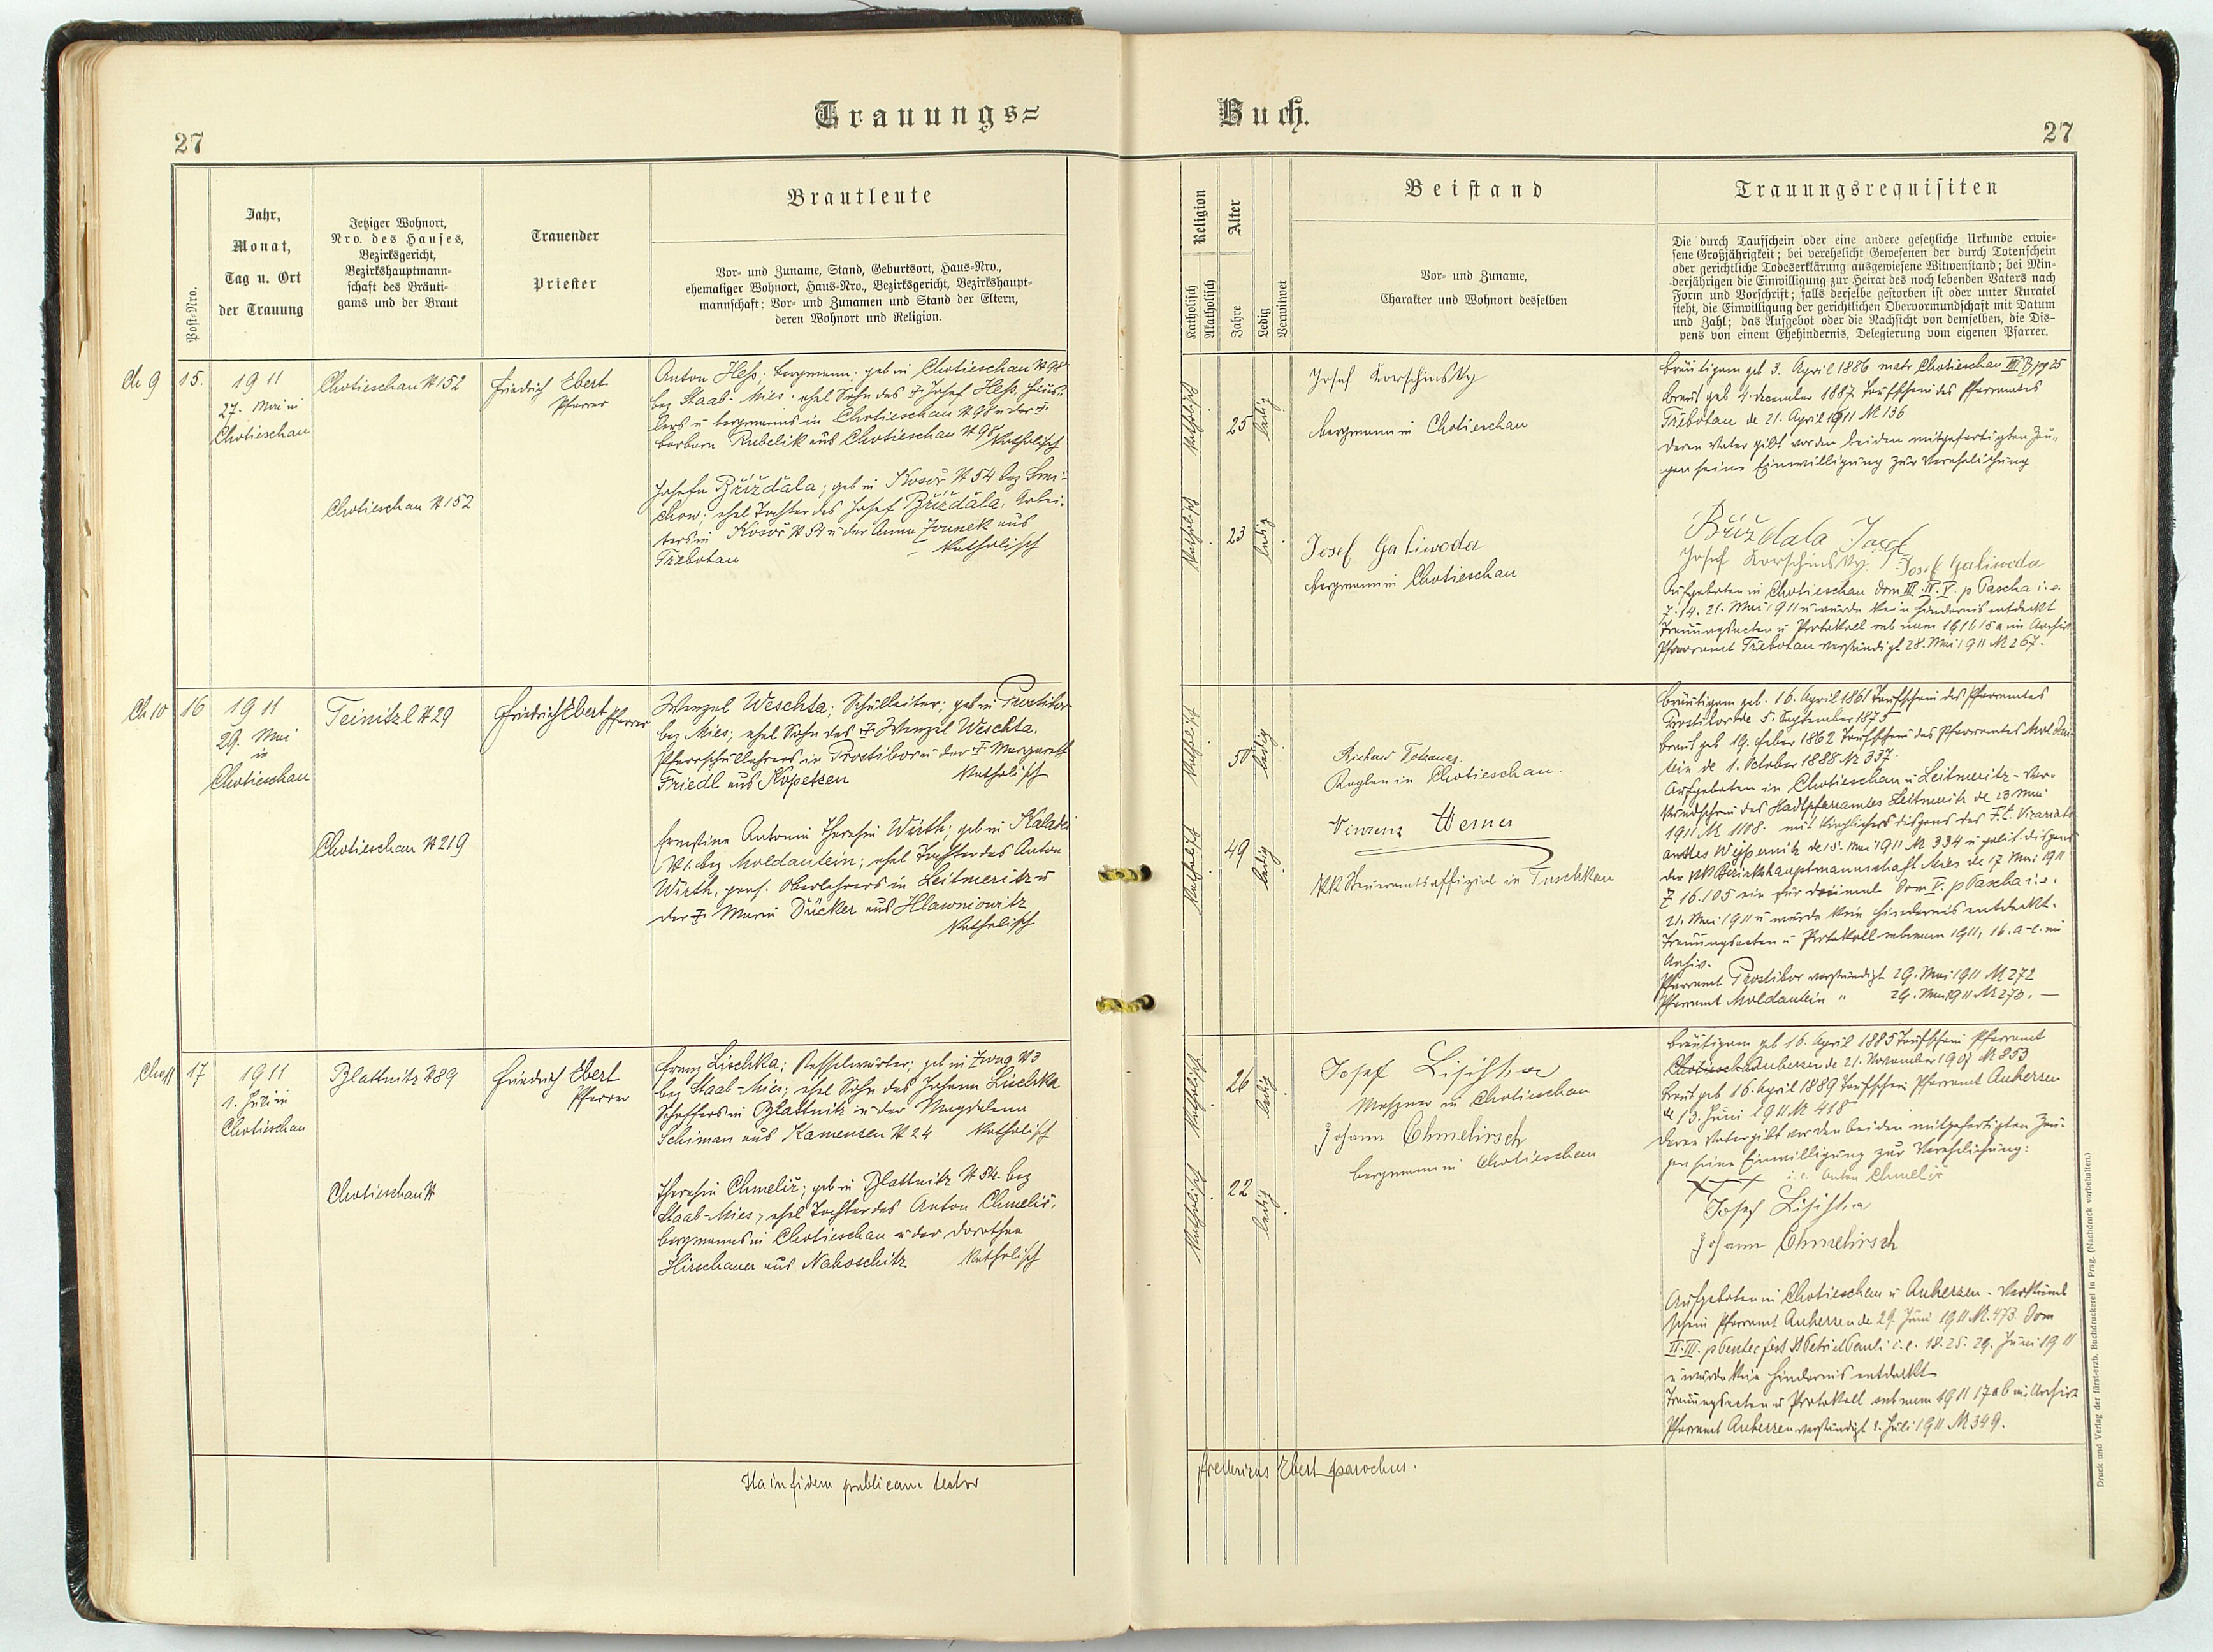 Trauungs=
Buch.
27
27
Post-Nro.
Jahr,
Monat,
Tag u. Ort
der Trauung
Jetziger Wohnort,
Nro. des Hauses,
Bezirksgericht,
Bezirkshauptmann-
schaft des Bräuti-
gams und der Braut
Trauender
Priester
Brautleute
Vor- und Zuname, Stand, Geburtsort, Haus-Nro.,
ehemaliger Wohnort, Haus-Nro., Bezirksgericht, Bezirkshaupt-
mannschaft; Vor- und Zunamen und Stand der Eltern,
deren Wohnort und Religion.
Religion
Katholisch
Akatholisch
Alter
Jahre
Ledig
Verwitwet
Beistand
Vor- und Zuname,
Charakter und Wohnort desselben
Trauungsrequisiten
Die durch Taufschein oder eine andere gesetzliche Urkunde erwie-
sene Großjährigkeit; bei verehelicht Gewesenen der durch Totenschein
oder gerichtliche Todeserklärung ausgewiesene Witwenstand; bei Min-
derjährigen die Einwilligung zur Heirat des noch lebenden Vaters nach
Form und Vorschrift; falls derselbe gestorben ist oder unter Kuratel
steht, die Einwilligung der gerichtlichen Obervormundschaft mit Datum
und Zahl; das Aufgebot oder die Nachsicht von demselben, die Dis-
pens von einem Ehehindernis, Delegierung vom eigenen Pfarrer.
Ch 9
15.
1911
27. Mai in
Chotieschau
Chotieschau N 152
Chotieschau N 152
Friedrich Ebert
Pfarrer
Anton Heß; bergmann; geb in Chotieschau N 98
bez Staab-Mies. ehel Sohn des † Josef Heß, Häus-
lers u bergmanns in Chotieschau N 98 u der †
barbara Kubelik aus Chotieschau N 95 Katholisch
Josefa Břízďala; geb in Kosoř N 54 bez Smi-
chow; ehel Tochter des Josef Břízďala, Arbei-
ters in Kosoř N 54 u der Anna Zounek aus
Třebotau Katholisch
Katholisch
25
ledig
Katholisch
23
ledig
Josef Korschinsky
bergmann in Chotieschau
Josef Galiwoda
bergmann in Chotieschau
bräutigam geb 3. April 1886 matr Chotieschau III B pg 25
braut geb 4. december 1887 Taufschein des Pfarramtes
Třebotau de 21. April 1911 N 136
deren Vater gibt vor den beiden mitgefertigten Zeu-
gen seine Einwilligung zur Verehelichung
Břízdala Josef
Josef Korschinsky. Josef Galiwoda
Aufgeboten in Chotieschau dom III. IV. V. p Pascha i. e.
7. 14. 21. Mai 1911 u wurde kein Hindernis entdeckt
Trauungsacten u Protokoll sub num 1911 15 a im Archiv
Pfarramt Třebotau verständigt 28. Mai 1911 N 267.
Ch 10
16
1911
29. Mai
in
Chotieschau
Teinitzl N 29
Chotieschau N 219
Friedrich Ebert Pfarrer
Wenzel Weschta; Schulleiter; geb in Prostibor
bez Mies; ehel Sohn des † Wenzel Weschta.
Pfarrschullehrers in Prostibor u der † Margareth
Friedl aus Kopetzen Katholisch
Ernestine Antonia Theresia Wirth; geb in Kaladei
N 1. bez Moldautein; ehel Tochter des Anton
Wirth, pens. Oberlehrers in Leitmeritz u
der † Maria Dücker aus Hlawniowitz
Katholisch
Katholisch
50
ledig
Katholisch
49
ledig
Kaplan in Chotieschau.
Vinzenz Werner
KK Steueramtsoffizial in Tuschkau
bräutigam geb. 16. April 1861 Taufschein des Pfarramtes
Prostibor de 5. September 1875
braut geb 19. feber 1862 Taufschein des Pfarramtes Moldau-
tein de 1. October 1888 N 337.
Aufgeboten in Chotieschau u Leitmeritz - Ver-
kündschein des Stadtpfarramtes Leitmeritz de 23 Mai
1911 N 1108. mit kirchlicher dispens des f. e. Vicariats-
amtes de 15. Mai 1911 N 334 u polit. dispens
der KK Bezirkshauptmannschaft Mies de 17 Mai 1911
Z 16.105 ein für dreimal dom V. p Pascha i. e.
21. Mai 1911 u wurde kein Hindernis entdeckt.
Trauungsacten u Protokoll sub num 1911, 16. a-e. im
Archiv.
Pfarramt Prostibor verständigt 29. Mai 1911 N 272
Pfarramt Moldautein " 29. Mai 1911 N 273. —
Ch 11
17
1911
1. Juli in
Chotieschau
Blattnitz N 89
Chotieschau N
Friedrich Ebert
Pfarrer
Franz Lischka; Kesselwärter; geb in Zwug N 3
bez Staab-Mies; ehel Sohn des Johann Lischka
Schaffers in Blattnitz u der Magdalena
Schiman aus Kamenzen N 24 Katholisch
Theresia Chmelíř; geb in Blattnitz N 54. bez
Staab-Mies; ehel Tochter des Anton Chmelíř,
bergmanns in Chotieschau u der Dorothea
Hirschauer aus Nahoschitz Katholisch
Katholisch
26
ledig
Katholisch
22
ledig
Josef Lischka
Meßner in Chotieschau
Johann Chmelirsch
bergmann in Chotieschau
bräutigam geb 16. April 1885 Taufschein Pfarramt
Auherzen de 21. November 1907 N 853
braut geb 16. April 1889 Taufschein Pfarramt Auherzen
de 13. Juni 1911 N 418
deren Vater gibt vor den beiden mitgefertigten Zeu-
gen seine Einwilligung zur Verehelichung:
XXX i. e. Anton Chmelíř
Josef Lischka
Johann Chmelirsch
Aufgeboten in Chotieschau u Auherzen - Verkünd
schein Pfarramt Auherzen de 29. Juni 1911 N. 473. Dom
II. III. p Pentec fest St Petri et Pauli i. e. 18. 25. 29. Juni 1911
u wurde kein Hindernis entdeckt
Trauungsacten u Protokoll sub num 1911 17 a b im Archiv
Pfarramt Auherzen verständigt 2. Juli 1911 N 349.
Ita in fidem publicam testor
Fredericus Ebert parochus.
Druck und Verlag der fürst-erzb. Buchdruckerei in Prag. (Nachdruck vorbehalten.)